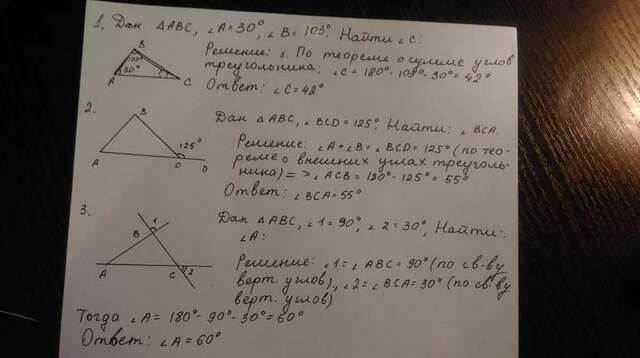 1. Дан ΔABC, ∠A=30°, ∠B=103°. Найти ∠C:
Решение: 1. По теореме о сумме углов
треугольника: ∠C = 180°-103°-30°=42°
Ответ: ∠C=42°
B
103°
30°
A
C
2.
Дан ΔABC, ∠BCD=125°. Найти: ∠BCA.
Решение: ∠A+∠B=∠BCD=125° (по тео-
реме о внешних углах треуголь-
ника) => ∠ACB=120°-125°=55°
Ответ: ∠BCA=55°
B
125°
A
C
D
3.
Дан ΔABC, ∠1=90°, ∠2=30°, Найти:
∠A:
Решение: ∠1=∠ABC=90° (по св-ву
верт. углов); ∠2=∠BCA=30° (по св-ву
верт. углов)
1
B
A
C
2
Тогда ∠A=180°-90°-30°=60°
Ответ: ∠A=60°